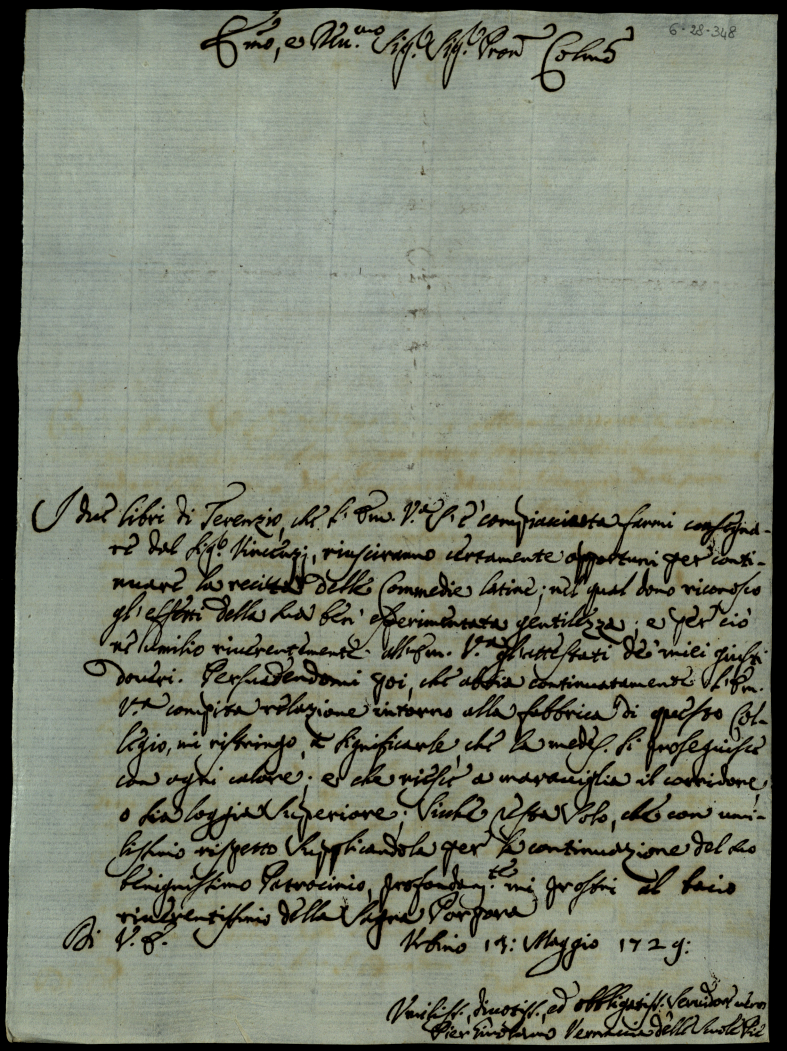 6-28-348
Emo, e Rmo. Sigr. Sigr. Pron Colmo
I due libri di Terenzio, che l'Em. Va. si è compiaciuta farmi consegna-
re dal Sigr. Vincenzj, riusciranno certamente opportuni per conti-
nuare la recitta delle Commedie latine; nel qual dono riconosco
gl'effetti della sua ben' esperimentata gentilezza; e per ciò
ne umilio riverentemente all'Em. Va. gl'attestati de' miei giusti
doveri. Persuadendomi poi, che abbia continuatamente l'Em.
Va. compita relazione intorno alla fabbrica di questo Col-
legio, mi ristringo a significarle, che la medes. si proseguisce
con ogni calore; e che riesce a maraviglia il corridore,
o sia loggia superiore; sicche resta solo, che con umi-
lissimo rispetto supplicandola per la continuazione del suo
benignissimo Patrocinio, profondamte. mi prostri al bacio
riverentissimo della Sagra Porpora
Di V. E. Urbino 13: Maggio 1729:
Umiliss. divotiss. ed obbligatiss. Servidor vero
Pier Girolamo Vernaccia delle Scuole Pie